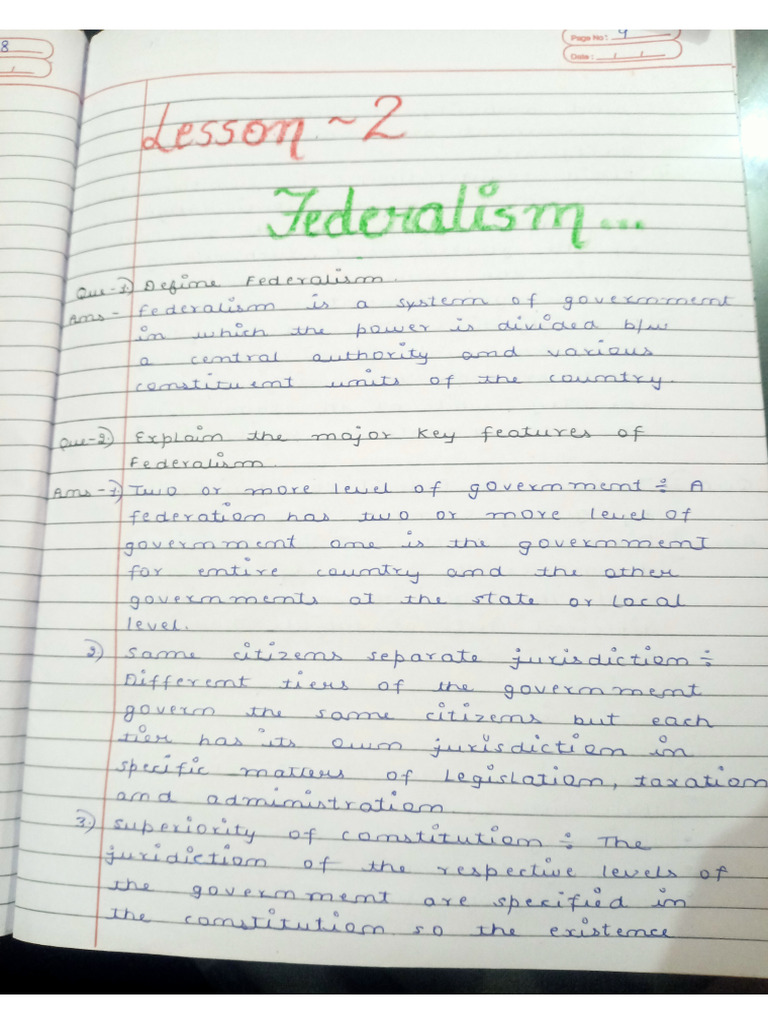 8
Page No: 4
Date: / /
Lesson ~ 2
Federalism...
Que-1.) Define Federalism.
Ans- Federalism is a system of government
in which the power is divided b/w
a central authority and various
constituent units of the country.
Que-2.) Explain the major key features of
Federalism.
Ans-1.) Two or more level of government ÷ A
federation has two or more level of
government one is the government
for entire country and the other
governments at the state or local
level.
2.) Same citizens separate jurisdiction ÷
Different tiers of the government
govern the same citizens but each
tier has its own jurisdiction in
specific matters of legislation, taxation
and administration
3.) Superiority of constitution ÷ The
juridiction of the respective levels of
the government are specified in
the constitution. so the existence